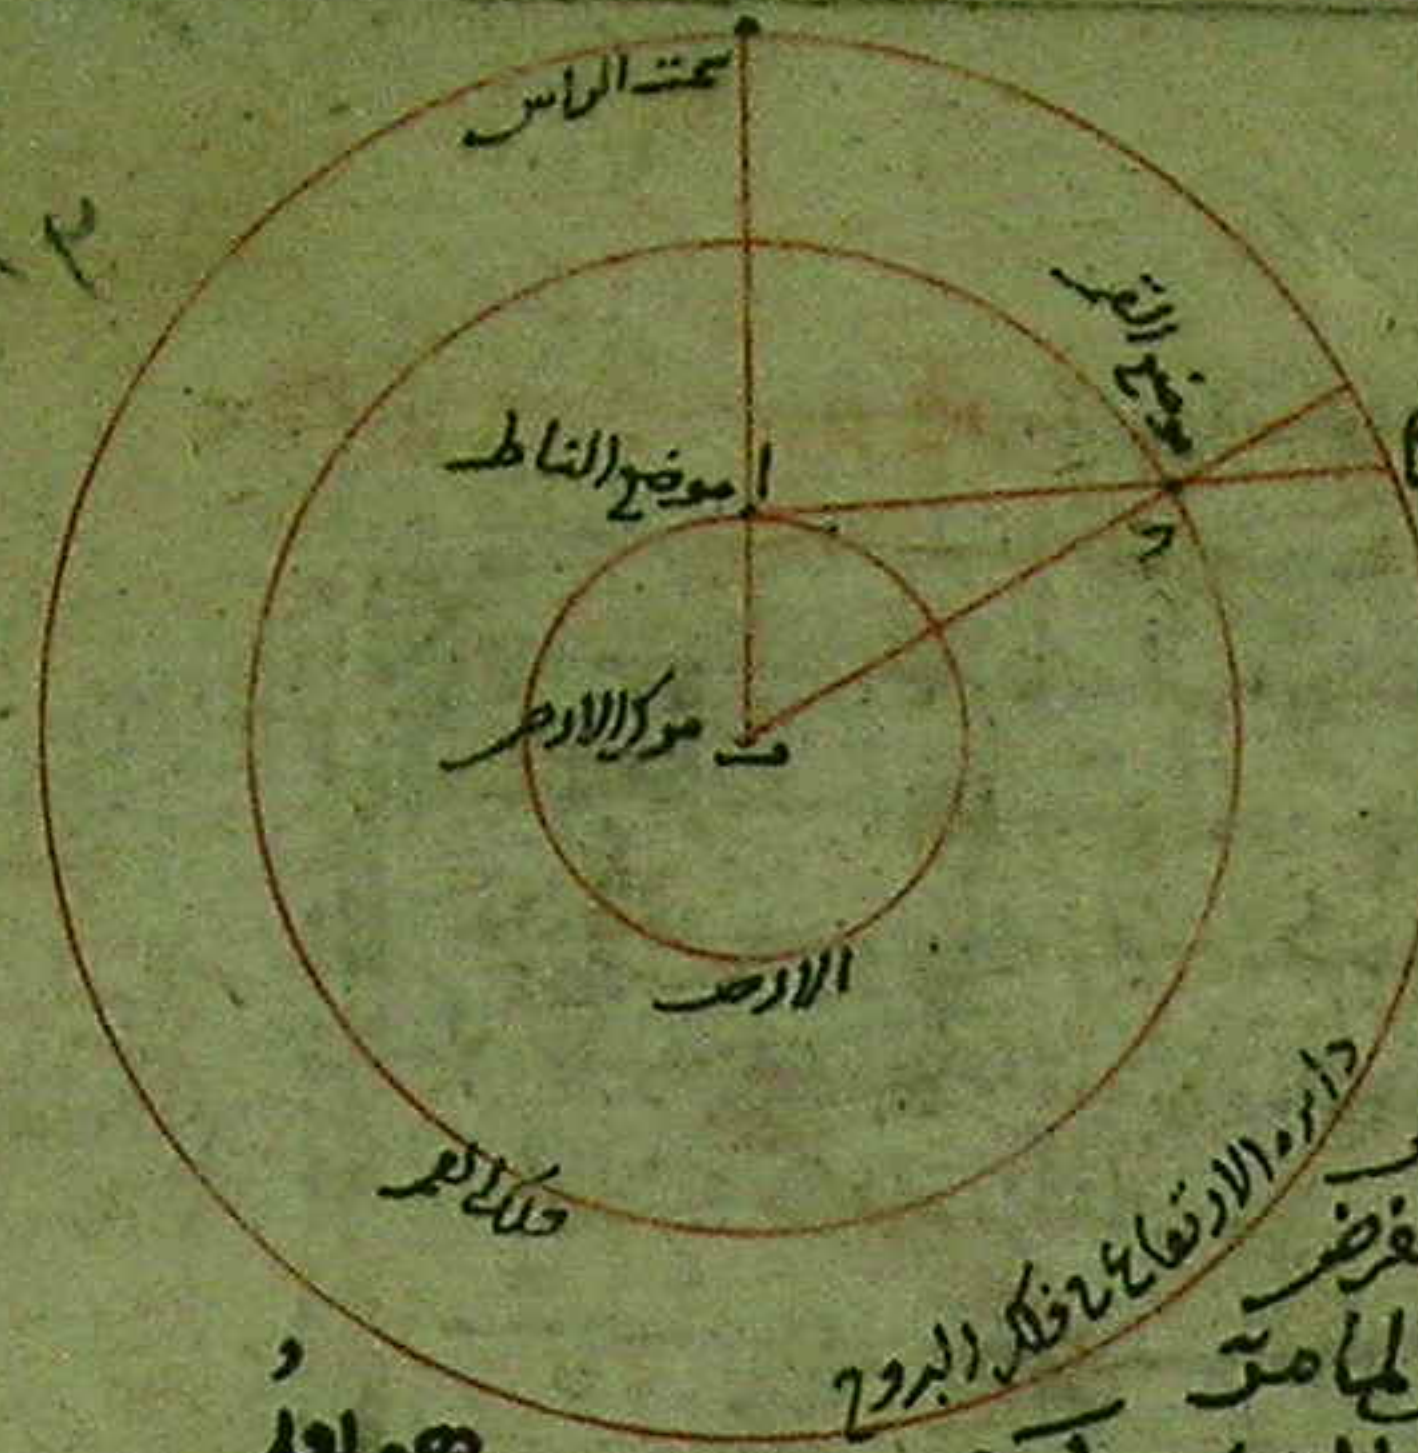 سمت الراس
موضع القمر
ا موضع الناظر
ح
ب مركز الارض
الارض
فلك القمر
دائره الارتفاع في فلك البروج
لما مر